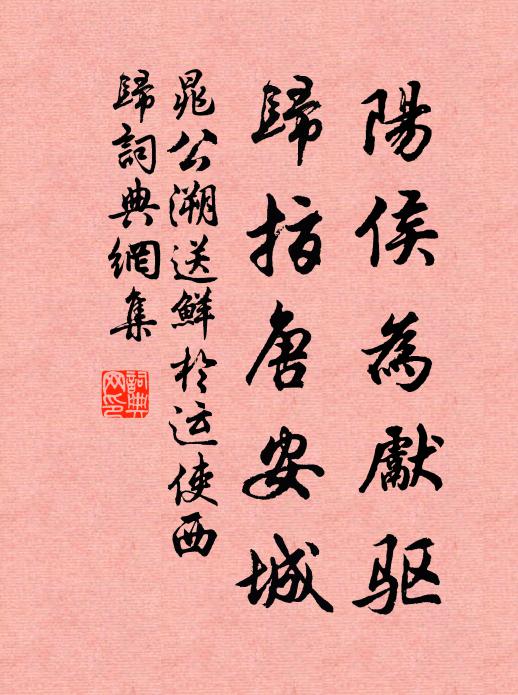 陽侯為獻驱
歸指唐安城
晁公溯送鮮於运使西
歸詞典網集
詞典网印